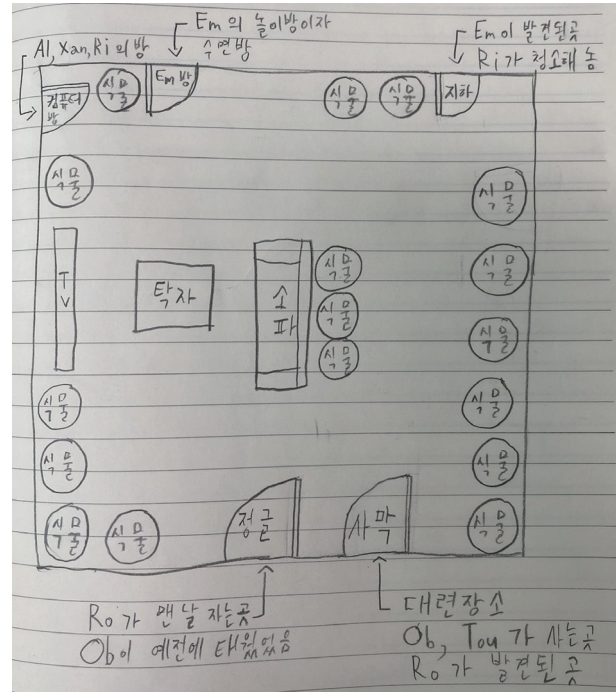 Em의 놀이방이자
수면방
Em이 발견된곳
Ri가 청소해 놈
Al, Xan, Ri의 방
컴퓨터
방
식물
Em방
식물
식물
지하
식물
식물
TV
탁자
소
파
식물
식물
식물
식물
식물
식물
식물
식물
식물
식물
식물
식물
정글
사막
식물
Ro가 맨날 자는곳
Ob이 예전에 태웠었음
대련장소
Ob, Tou가 사는곳
Ro가 발견된 곳